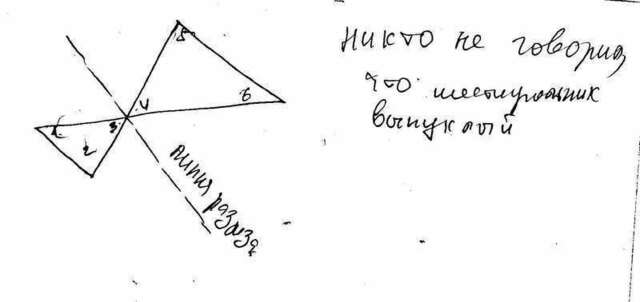 5
4
6
1
3
2
линия разреза
никто не говорил,
что шестиугольник
выпуклый